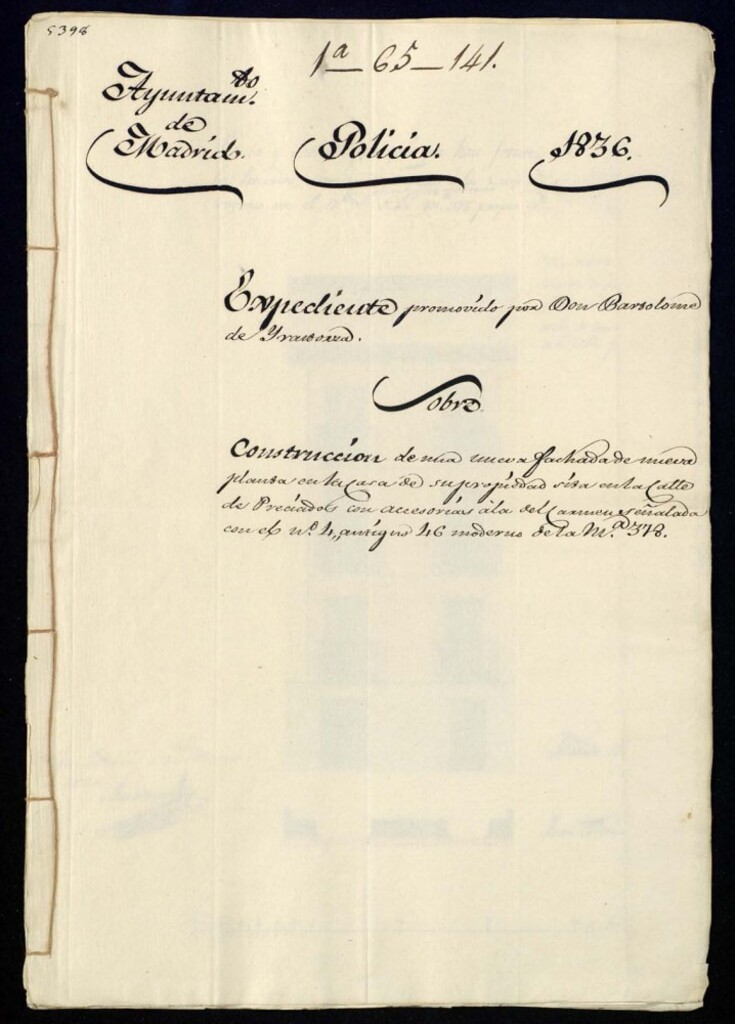 5398
1ª — 65 — 141.
Ayuntam.to
de
Madrid.
Policía.
1836.
Expediente promovido por Don Bartolomé
de
Sobre
Construccion de una nueva fachada de nueva
planta en la Casa de su propiedad sita en la Calle
de Preciados con accesorias á la del Carmen señalada
con el nº. 4, antiguo 46 moderno de la M.ª 378.